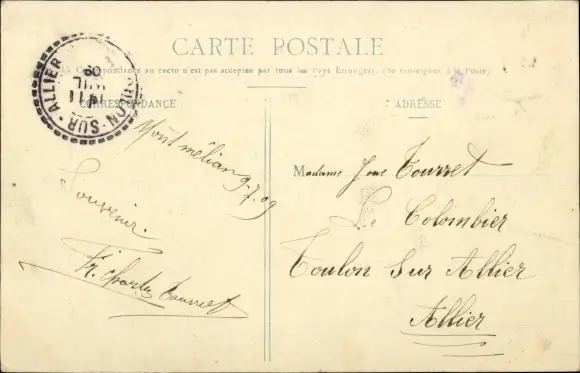 CARTE POSTALE
La Correspondance au recto n'est pas acceptée par tous les Pays Étrangers. (Se renseigner à la Poste).
CORRESPONDANCE
ADRESSE
TOULON-SUR-ALLIER
09
Montmélian 9-7-09
Souvenir.
Fr. Charles Tourret
Madame Tourret
Le Colombier
Toulon sur Allier
Allier